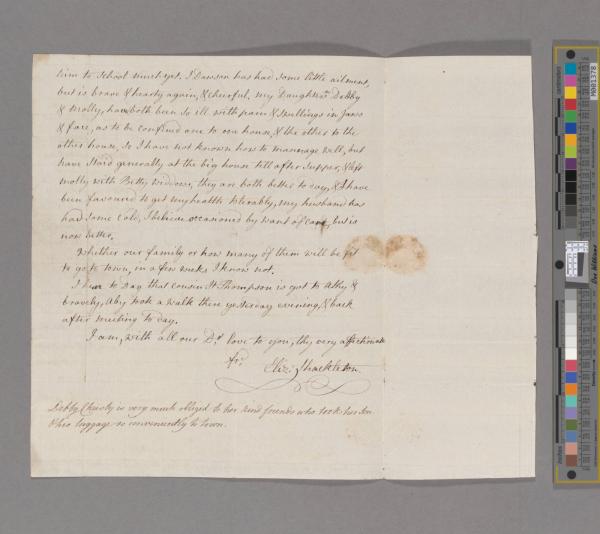 him to School much yet. J Dawson has had some little ailment,
but is brave & hearty again, & chearful. my Daughters Debby
& Molly, have both been so ill with pain & swellings in Jaws
& face, as to be confined one to one house, & the other to the
other house, So I have not known how to mannage well, but
have Staid generally at the big house till after Supper, & left
Molly with Betty widdows, they are both better to day, & I have
been favoured to get my health tolerably, my husband has
had some Cold, I believe occasioned by want of care, but is
now better.
Whether our family or how many of them will be fit
to go to town, in a few weeks I know not.
I hear to Day that cousin Thompson is got to Athy &
bravely, Aby took a walk there yesterday evening, & back
after meeting to day.
I am, with all our Dr. love to you, thy very affectionate
fr.
Eliz: Shackleton
Debby Christy is very much obliged to her kind friends who took her Son
luggage so conveniently to town.
M001378
inches
Don Williams